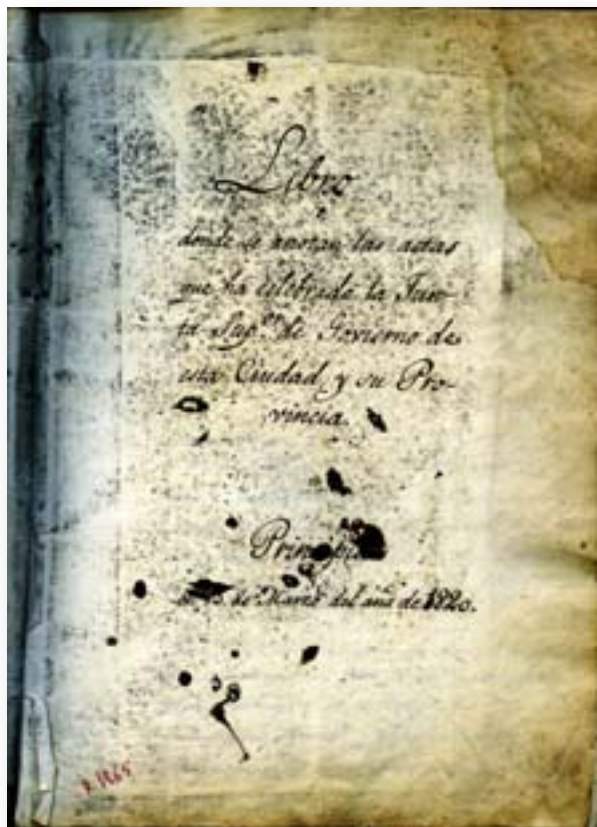 Libro
donde se anotan las actas
que ha celebrado la Jun-
ta Sup.or de Govierno de
esta Ciudad, y su Pro-
vincia.
de Marzo del año de 1820.
1865